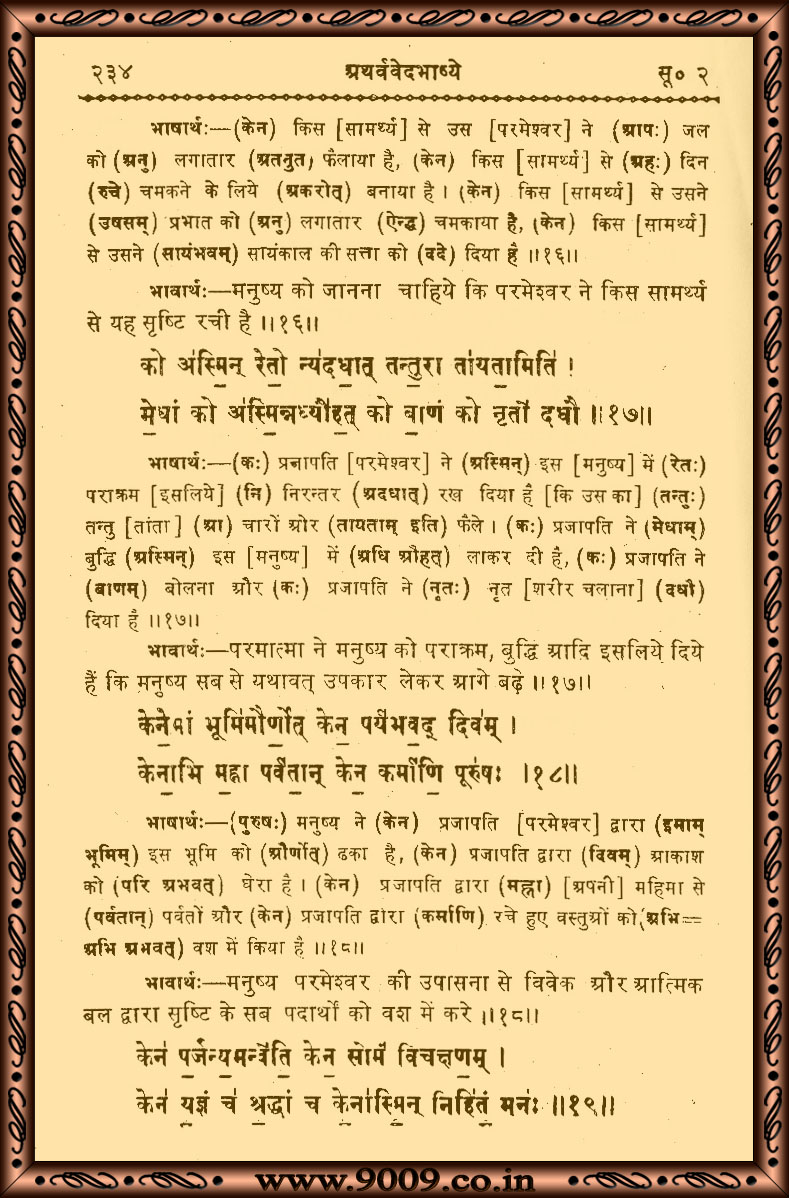 २३४ अथर्ववेदभाष्ये सू० २
भाषार्थः—(केन) किस [सामर्थ्य] से उस [परमेश्वर] ने (आपः) जल
को (अनु) लगातार (अतनुत) फैलाया है, (केन) किस [सामर्थ्य] से (अहः) दिन
(रुचे) चमकने के लिये (अकरोत्) बनाया है। (केन) किस [सामर्थ्य] से उसने
(उषसम्) प्रभात को (अनु) लगातार (ऐन्द्ध) चमकाया है, (केन) किस [सामर्थ्य]
से उसने (सायंभवम्) सायंकाल की सत्ता को (ददे) दिया है ॥१६॥
भावार्थः—मनुष्य को जानना चाहिये कि परमेश्वर ने किस सामर्थ्य
से यह सृष्टि रची है ॥१६॥
को अ॑स्मि॒न् रेतो॒ न्य॑दधा॒त् तन्तु॒रा ता॑यता॒मिति॑ ।
मे॒धां को अ॑स्मि॒न्नध्यौ॑ह॒त् को बा॒णं को नृतो॑ दधौ ॥१७॥
भाषार्थः—(कः) प्रजापति [परमेश्वर] ने (अस्मिन्) इस [मनुष्य] में (रेतः)
पराक्रम [इसलिये] (नि) निरन्तर (अदधात्) रख दिया है [कि उस का] (तन्तुः)
तन्तु [तांता] (आ) चारों ओर (तायताम् इति) फैले। (कः) प्रजापति ने (मेधाम्)
बुद्धि (अस्मिन्) इस [मनुष्य] में (अधि औहत्) लाकर दी है, (कः) प्रजापति ने
(बाणम्) बोलना और (कः) प्रजापति ने (नृतः) नृत [शरीर चलाना] (दधौ)
दिया है ॥१७॥
भावार्थः—परमात्मा ने मनुष्य को पराक्रम, बुद्धि आदि इसलिये दिये
हैं कि मनुष्य सब से यथावत् उपकार लेकर आगे बढ़े ॥१७॥
केने॒मां भूमि॑मौर्णो॒त् केन॒ पर्य॑भव॒द् दिव॑म् ।
केना॒भि म॒ह्ना पर्व॑ता॒न् केन॒ कर्मा॑णि॒ पूरु॑षः ॥१८॥
भाषार्थः—(पुरुषः) मनुष्य ने (केन) प्रजापति [परमेश्वर] द्वारा (इमाम्
भूमिम्) इस भूमि को (और्णोत्) ढका है, (केन) प्रजापति द्वारा (दिवम्) आकाश
को (परि अभवत्) घेरा है। (केन) प्रजापति द्वारा (मह्ना) [अपनी] महिमा से
(पर्वतान्) पर्वतों और (केन) प्रजापति द्वारा (कर्माणि) रचे हुए वस्तुओं को (अभि=
अभि अभवत्) वश में किया है ॥१८॥
भावार्थः—मनुष्य परमेश्वर की उपासना से विवेक और आत्मिक
बल द्वारा सृष्टि के सब पदार्थों को वश में करे ॥१८॥
केन॑ प॒र्जन्य॒मन्वे॑ति॒ केन॒ सोमं॑ विचक्ष॒णम् ।
केन॑ य॒ज्ञं च॑ श्र॒द्धां च॒ केना॑स्मि॒न् निहि॑तं॒ मनः॑ ॥१९॥
www.9009.co.in